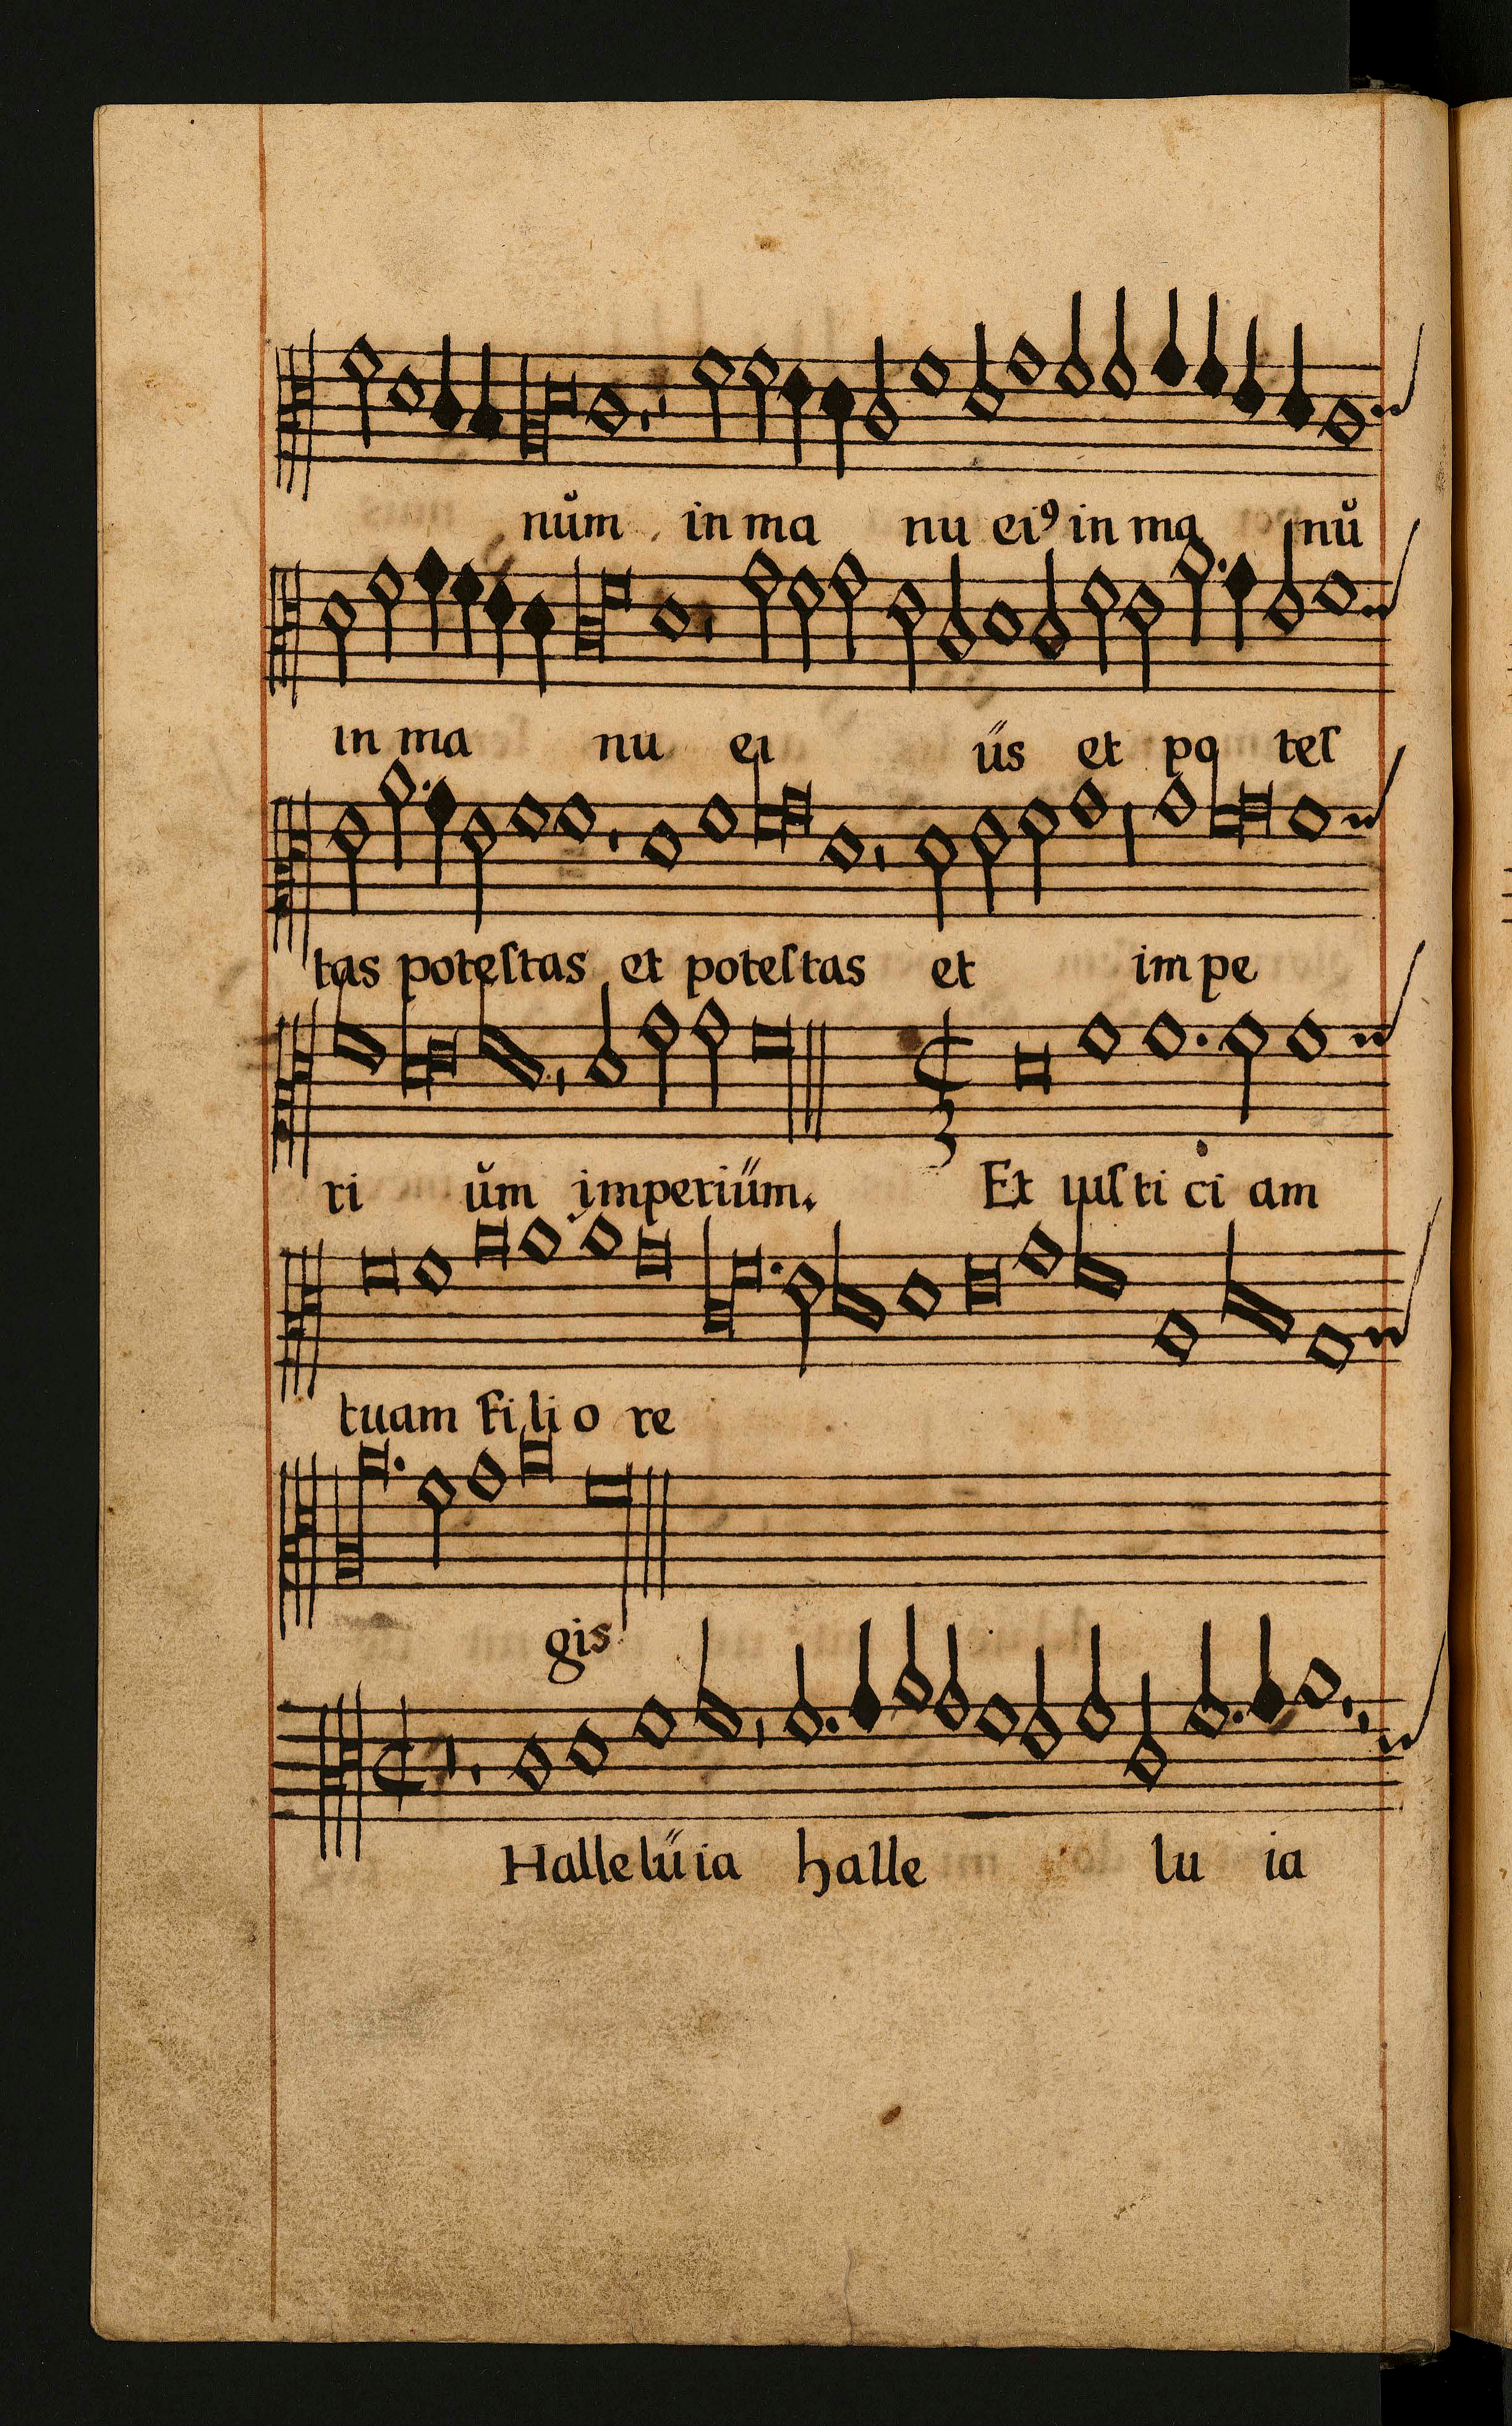 nŭm in ma nu eiꝰ in ma nŭ
in ma nu ei űs et po teſ
tas poteſtas et poteſtas et im pe
ri ŭm imperiűm.
Et iuſti ci am
tuam fi li o re
gis
Hallelűia halle lu ia